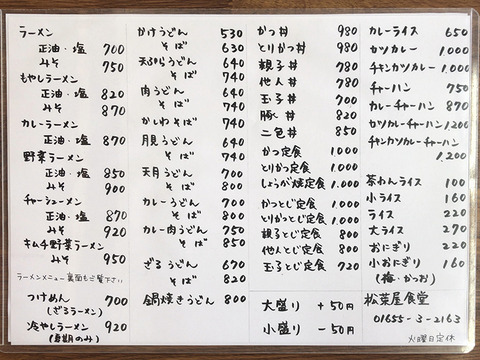 ラーメン
正油・塩 700
みそ 750
もやしラーメン
正油・塩 820
みそ 870
カレーラーメン
正油・塩 870
野菜ラーメン
正油・塩 850
みそ 900
チャーシューメン
正油・塩 870
みそ 920
キムチ野菜ラーメン
みそ 950
ラーメンメニュー裏面もご覧下さい
つけめん 700
(ざるラーメン)
冷やしラーメン 920
(夏期のみ)
かけうどん 530
そば 630
天ぷらうどん 640
そば 740
肉うどん 640
そば 740
かしわうどん 640
かしわそば 740
月見うどん 640
そば 740
天月うどん 700
そば 800
カレーうどん 700
そば 800
カレー肉うどん 750
そば 850
ざるうどん 670
そば 820
鍋焼きうどん 800
かつ丼 980
とりかつ丼 980
親子丼 780
他人丼 780
玉子丼 700
豚丼 820
二色丼 850
かつ定食 1.000
とりかつ定食 1.000
しょうが焼定食 1.000
かつとじ定食 1.000
とりかつとじ定食 1.000
親子とじ定食 800
他人とじ定食 800
玉子とじ定食 720
大盛り +50円
小盛り -50円
カレーライス 650
カツカレー 1.000
チキンカツカレー 1.000
チャーハン 750
カレーチャーハン 870
カツカレーチャーハン 1.200
チキンカツカレーチャーハン
1.200
茶わんライス 100
小ライス 160
ライス 220
大ライス 270
おにぎり 220
小おにぎり 160
(梅・かつお)
松葉屋食堂
01655-3-2163
火曜日定休